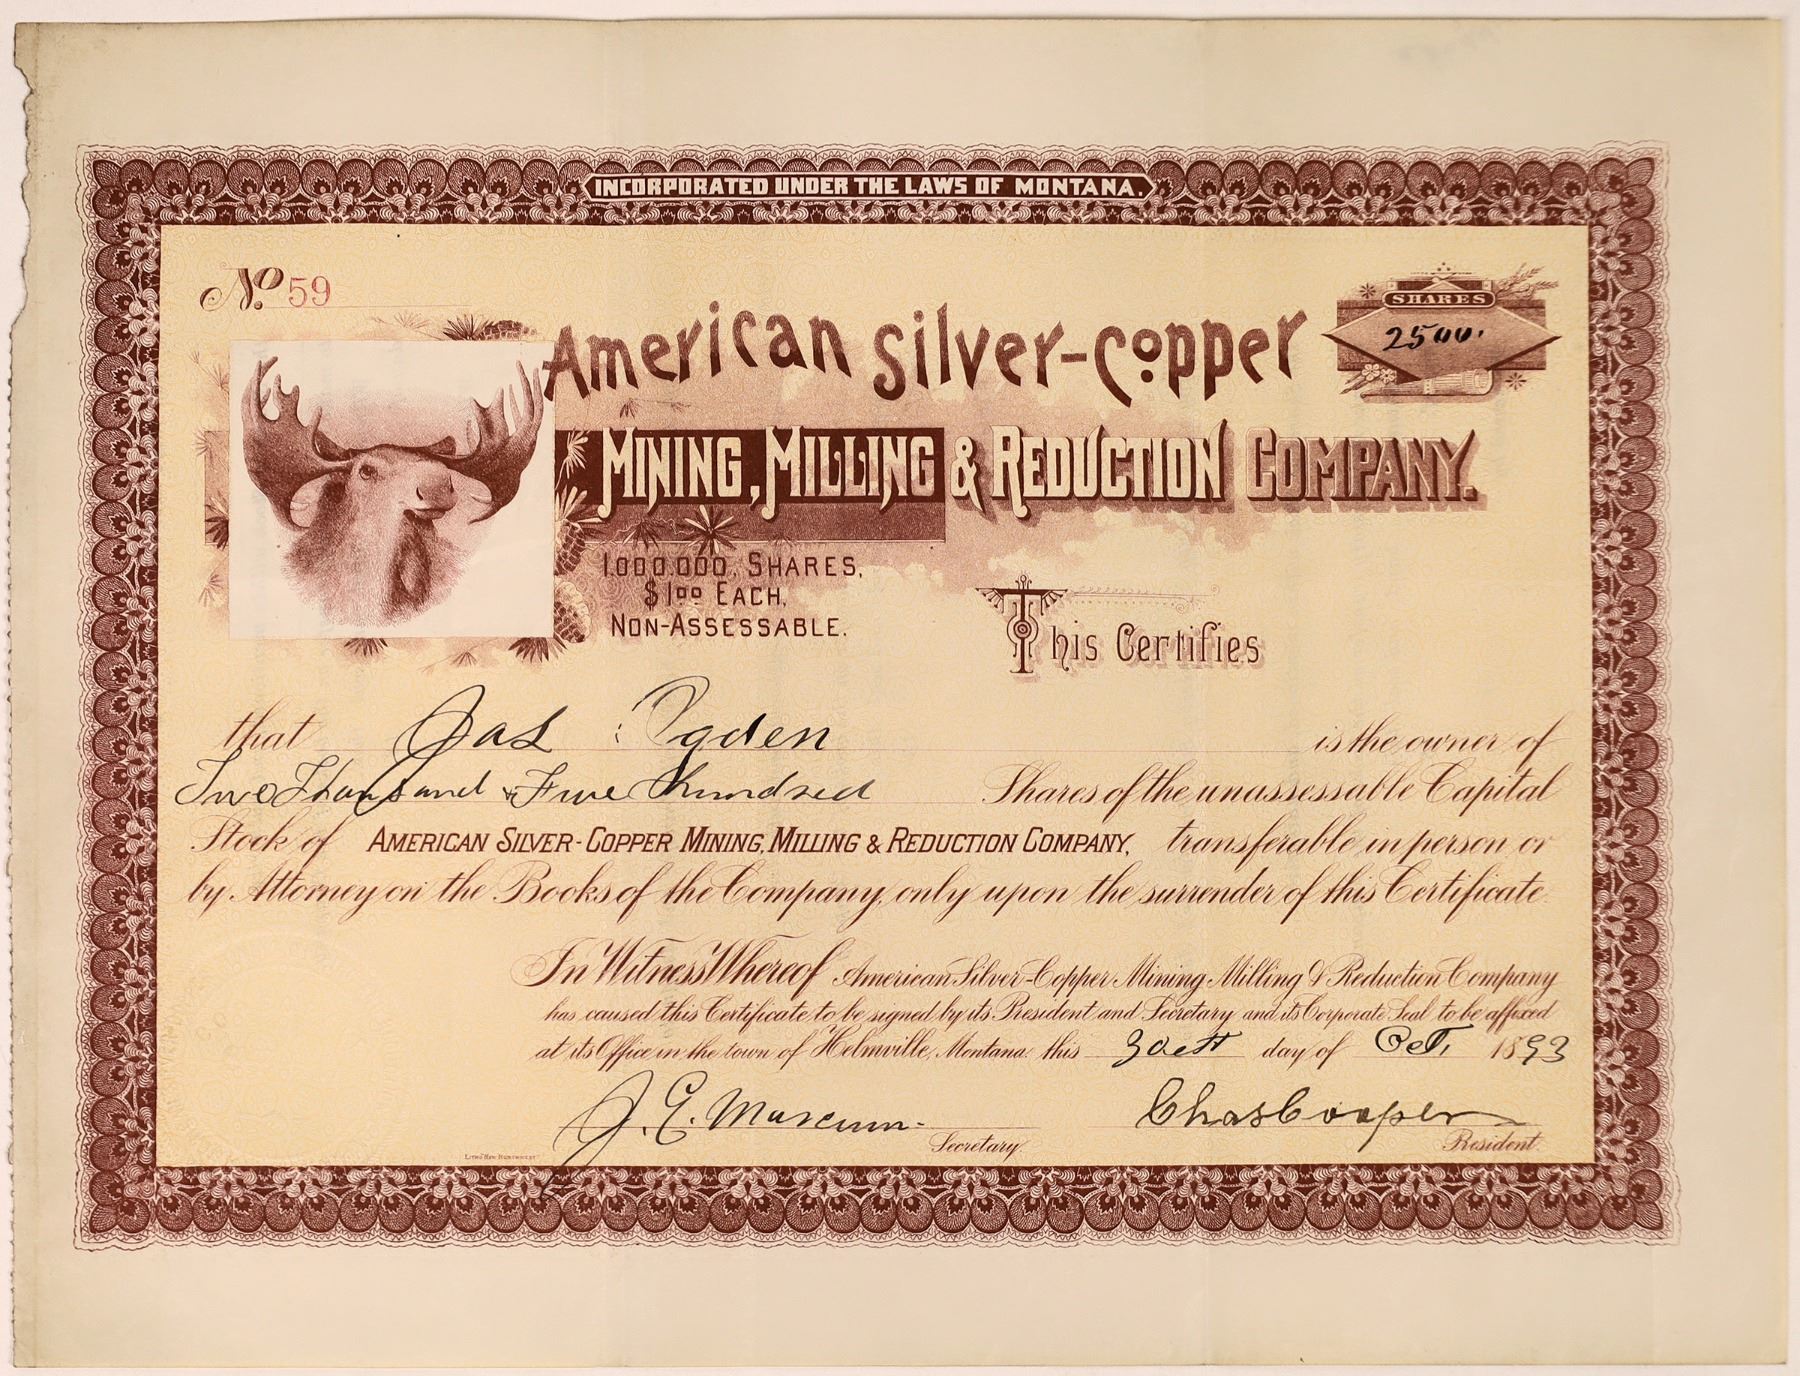 INCORPORATED UNDER THE LAWS OF MONTANA.
No. 59
SHARES
2500.
American Silver-Copper
MINING, MILLING & REDUCTION COMPANY.
1,000,000, SHARES,
$1.00 EACH,
NON-ASSESSABLE.
This Certifies
that Jas Ogden is the owner of
Two Thousand & Five Hundred Shares of the unassessable Capital
Stock of AMERICAN SILVER-COPPER MINING, MILLING & REDUCTION COMPANY, transferable in person or
by Attorney on the Books of the Company, only upon the surrender of this Certificate.
In Witness Whereof American Silver-Copper Mining Milling & Reduction Company
has caused this Certificate to be signed by its President and Secretary and its Corporate Seal to be affixed
at its Office in the town of Helmville, Montana this 30th day of Oct, 1893
J. E. Chas Cooper
Secretary. President.